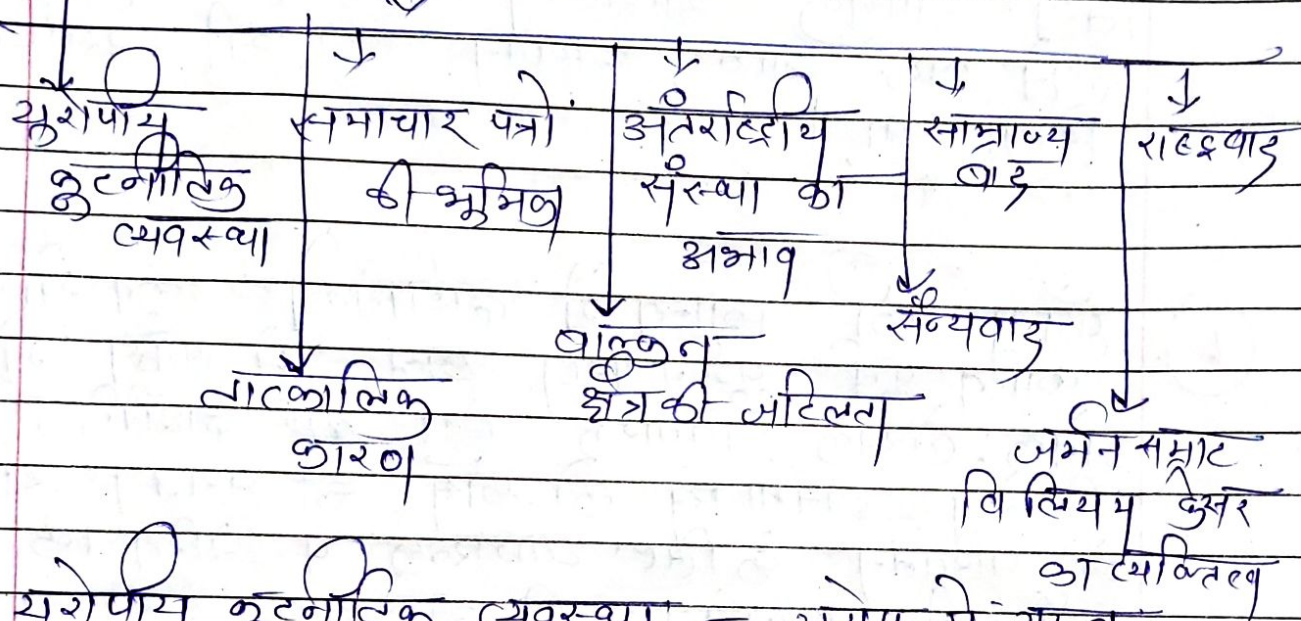 युरोपीय
कुटनीतिक
व्यवस्था
समाचार पत्रों
की भूमिका
अंतर्राष्ट्रीय
संस्था का
अभाव
साम्राज्य
वाद
राष्ट्रवाद
तात्कालिक
कारण
बाल्कन
क्षेत्र की जटिलता
सैन्यवाद
जर्मन सम्राट
विलियम केसर
का व्यक्तित्व
यूरोपीय कुटनीतिक व्यवस्था -